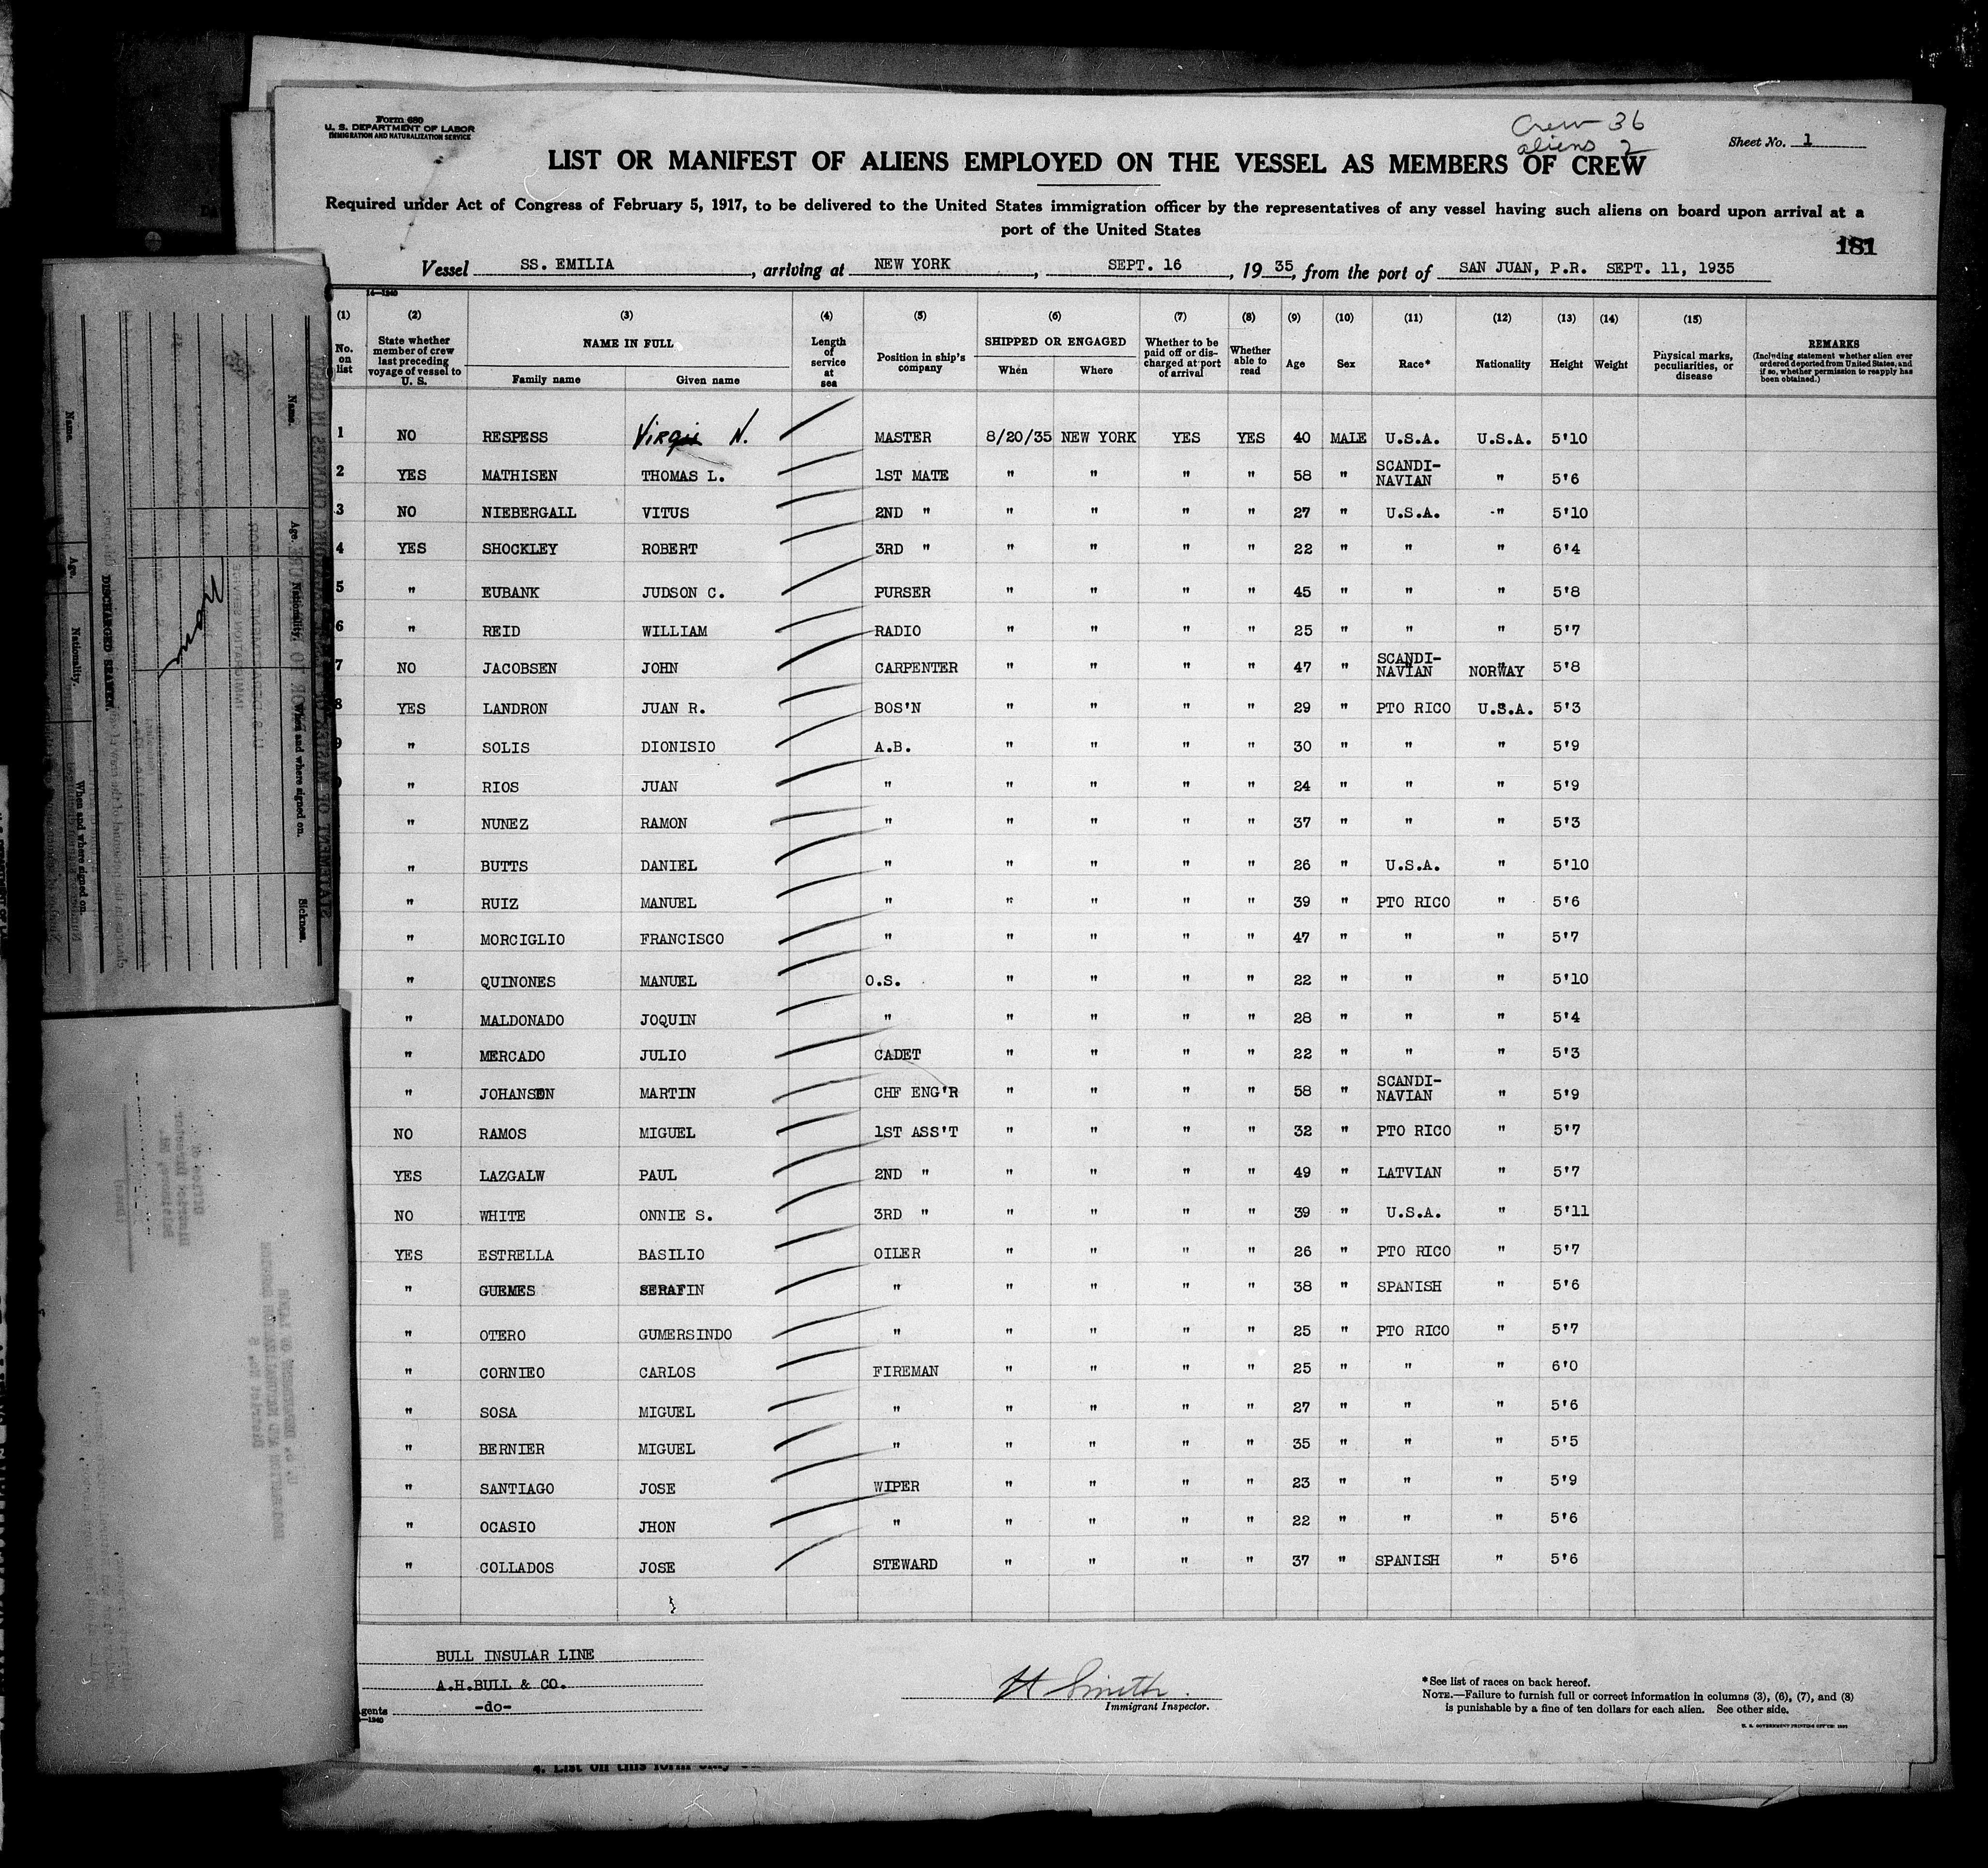 Form 680
U. S. DEPARTMENT OF LABOR
IMMIGRATION AND NATURALIZATION SERVICE
Crew 36
aliens 2
Sheet No. 1
LIST OR MANIFEST OF ALIENS EMPLOYED ON THE VESSEL AS MEMBERS OF CREW
Required under Act of Congress of February 5, 1917, to be delivered to the United States immigration officer by the representatives of any vessel having such aliens on board upon arrival at a
port of the United States
181
Vessel SS. EMILIA, arriving at NEW YORK, SEPT. 16, 19 35, from the port of SAN JUAN, P.R. SEPT. 11, 1935
14-1240
(1) (2) (3) (4) (5) (6) (7) (8) (9) (10) (11) (12) (13) (14) (15)
No. on list
State whether member of crew last preceding voyage of vessel to U. S.
NAME IN FULL
Family name
Given name
Length of service at sea
Position in ship's company
SHIPPED OR ENGAGED
When
Where
Whether to be paid off or discharged at port of arrival
Whether able to read
Age
Sex
Race*
Nationality
Height
Weight
Physical marks, peculiarities, or disease
REMARKS
(Including statement whether alien ever ordered deported from United States, and if so, whether permission to reapply has been obtained.)
1 NO RESPESS Virgil N. MASTER 8/20/35 NEW YORK YES YES 40 MALE U.S.A. U.S.A. 5'10
2 YES MATHISEN THOMAS L. 1ST MATE " " " " 58 " SCANDI-NAVIAN " 5'6
3 NO NIEBERGALL VITUS 2ND " " " " " 27 " U.S.A. " 5'10
4 YES SHOCKLEY ROBERT 3RD " " " " " 22 " " " 6'4
5 " EUBANK JUDSON C. PURSER " " " " 45 " " " 5'8
6 " REID WILLIAM RADIO " " " " 25 " " " 5'7
7 NO JACOBSEN JOHN CARPENTER " " " " 47 " SCANDI-NAVIAN NORWAY 5'8
8 YES LANDRON JUAN R. BOS'N " " " " 29 " PTO RICO U.S.A. 5'3
9 " SOLIS DIONISIO A.B. " " " " 30 " " " 5'9
" RIOS JUAN " " " " " 24 " " " 5'9
" NUNEZ RAMON " " " " " 37 " " " 5'3
" BUTTS DANIEL " " " " " 26 " U.S.A. " 5'10
" RUIZ MANUEL " " " " " 39 " PTO RICO " 5'6
" MORCIGLIO FRANCISCO " " " " " 47 " " " 5'7
" QUINONES MANUEL O.S. " " " " 22 " " " 5'10
" MALDONADO JOQUIN " " " " " 28 " " " 5'4
" MERCADO JULIO CADET " " " " 22 " " " 5'3
" JOHANSON MARTIN CHF ENG'R " " " " 58 " SCANDI-NAVIAN " 5'9
NO RAMOS MIGUEL 1ST ASS'T " " " " 32 " PTO RICO " 5'7
YES LAZGALW PAUL 2ND " " " " " 49 " LATVIAN " 5'7
NO WHITE ONNIE S. 3RD " " " " " 39 " U.S.A. " 5'11
YES ESTRELLA BASILIO OILER " " " " 26 " PTO RICO " 5'7
" GUEMES SERAFIN " " " " " 38 " SPANISH " 5'6
" OTERO GUMERSINDO " " " " " 25 " PTO RICO " 5'7
" CORNIEO CARLOS FIREMAN " " " " 25 " " " 6'0
" SOSA MIGUEL " " " " " 27 " " " 5'6
" BERNIER MIGUEL " " " " " 35 " " " 5'5
" SANTIAGO JOSE WIPER " " " " 23 " " " 5'9
" OCASIO JHON " " " " " 22 " " " 5'6
" COLLADOS JOSE STEWARD " " " " 37 " SPANISH " 5'6
BULL INSULAR LINE
A.H.BULL & CO.
-do-
gents
H Smith
Immigrant Inspector.
*See list of races on back hereof.
NOTE.—Failure to furnish full or correct information in columns (3), (6), (7), and (8)
is punishable by a fine of ten dollars for each alien. See other side.
4. List on this form only
Name. Age. Nationality. When and where signed on. Sickness.
DISCHARGED
Name. Age. Nationality. When and where signed on.
None